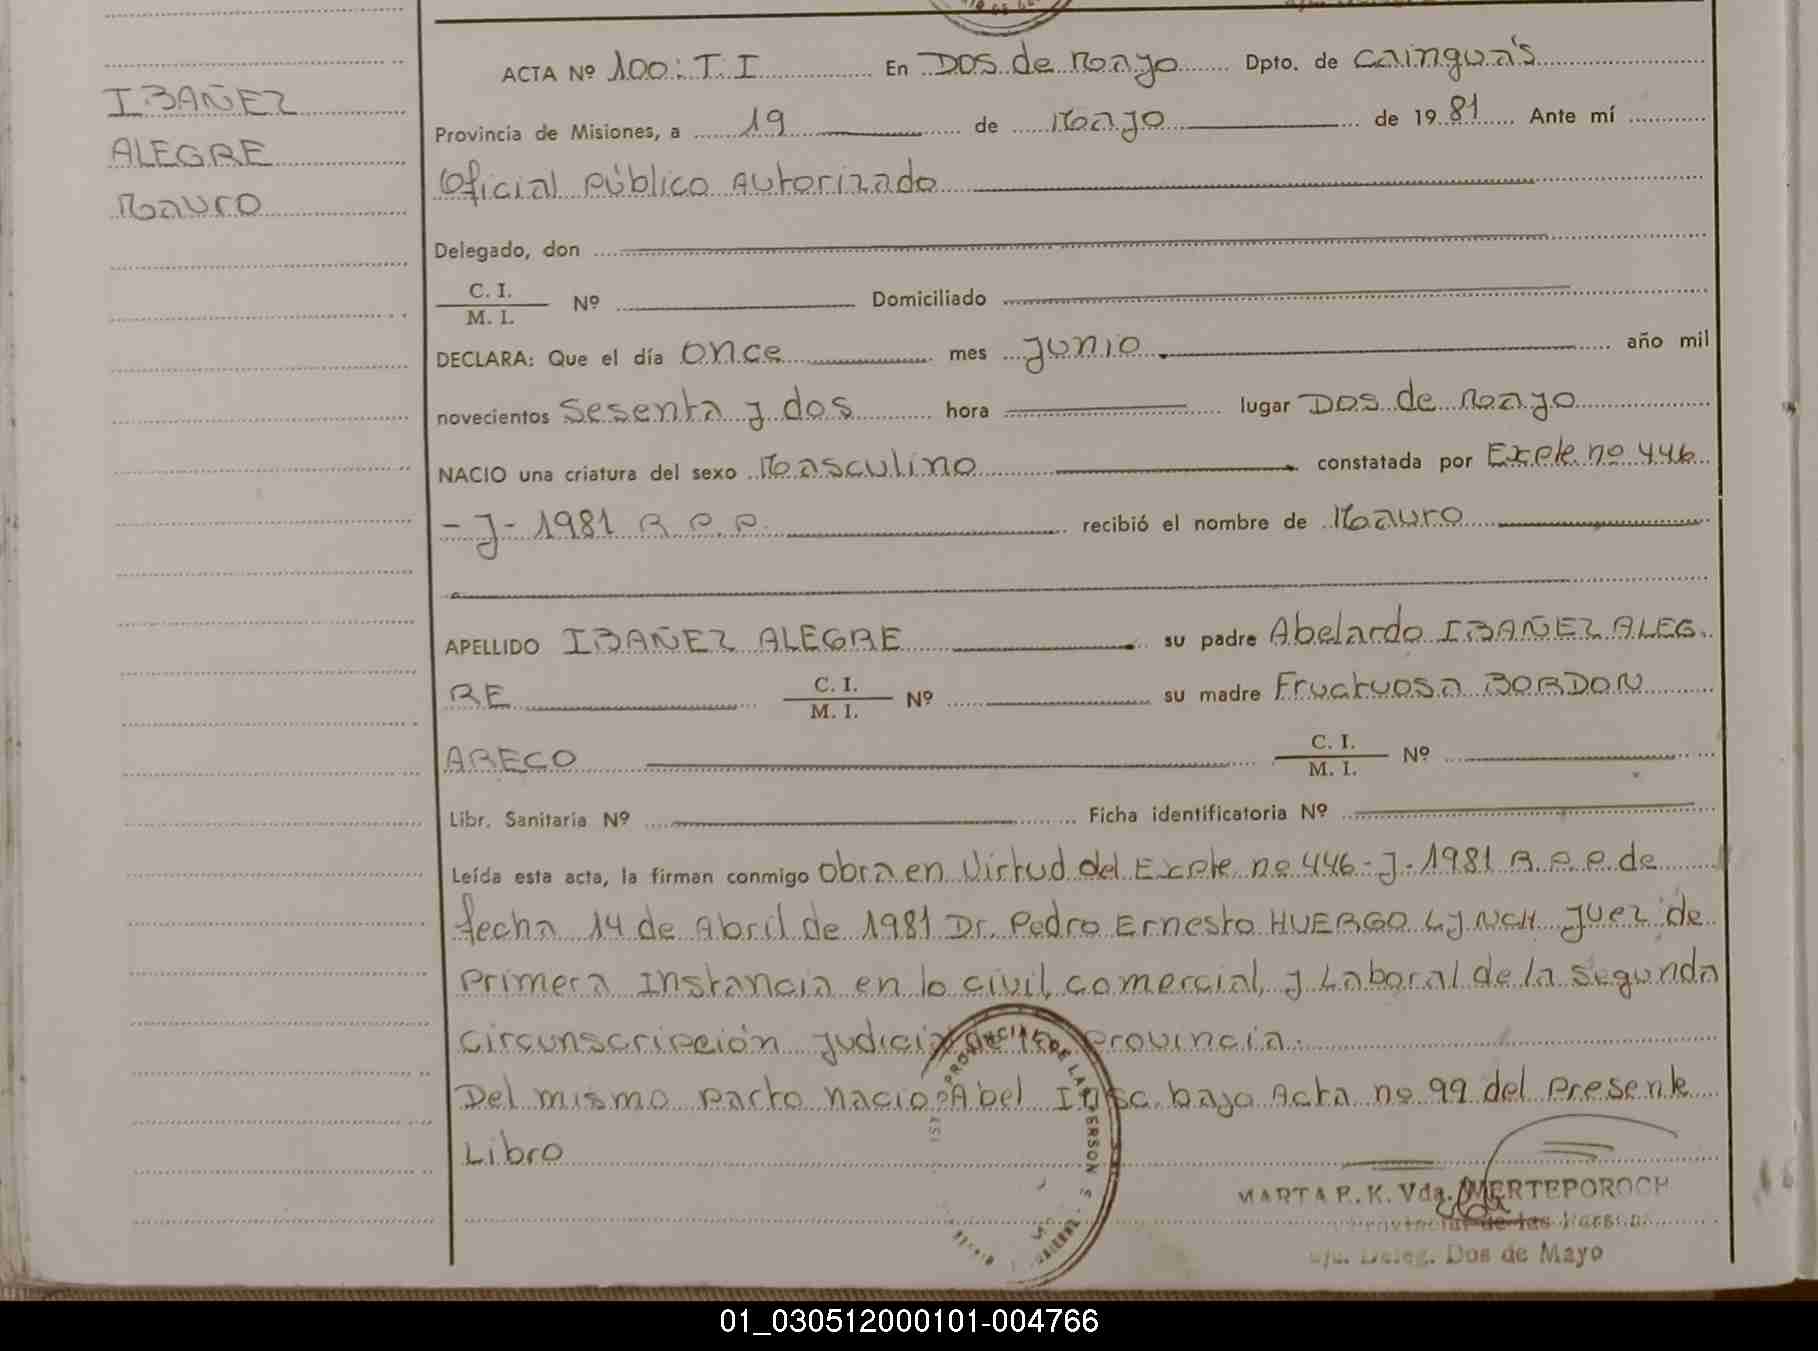 IBAÑEZ
ALEGRE
Mauro
ACTA Nº 100: T. I En Dos de Mayo Dpto. de Cainguá's
Provincia de Misiones, a 19 de Mayo de 1981 Ante mí
Oficial Público Autorizado
Delegado, don
C. I.
M. I. Nº Domiciliado
DECLARA: Que el día once mes Junio año mil
novecientos Sesenta y dos hora lugar Dos de Mayo
NACIO una criatura del sexo Masculino constatada por Expte nº 446
- J - 1981 R.P.P. recibió el nombre de Mauro
APELLIDO IBAÑEZ ALEGRE su padre Abelardo IBAÑEZ ALEG.
RE C. I. M. I. Nº su madre Fructuosa BORDON
ARECO C. I. M. I. Nº
Libr. Sanitaria Nº Ficha identificatoria Nº
Leída esta acta, la firman conmigo Obra en Virtud del Expte nº 446-J-1981 R.P.P. de
fecha 14 de Abril de 1981 Dr. Pedro Ernesto HUERGO LYNCH Juez de
Primera Instancia en lo civil, comercial, y Laboral de la Segunda
circunscripción judicial de la Provincia.
Del mismo parto nacio: Abel Insc. bajo Acta nº 99 del presente
Libro
PROVINCIAL DE LAS PERSONAS
MARTA P. K. Vda. WERTEPOROCH
Provincial de las Person
Deleg. Dos de Mayo
01_030512000101-004766